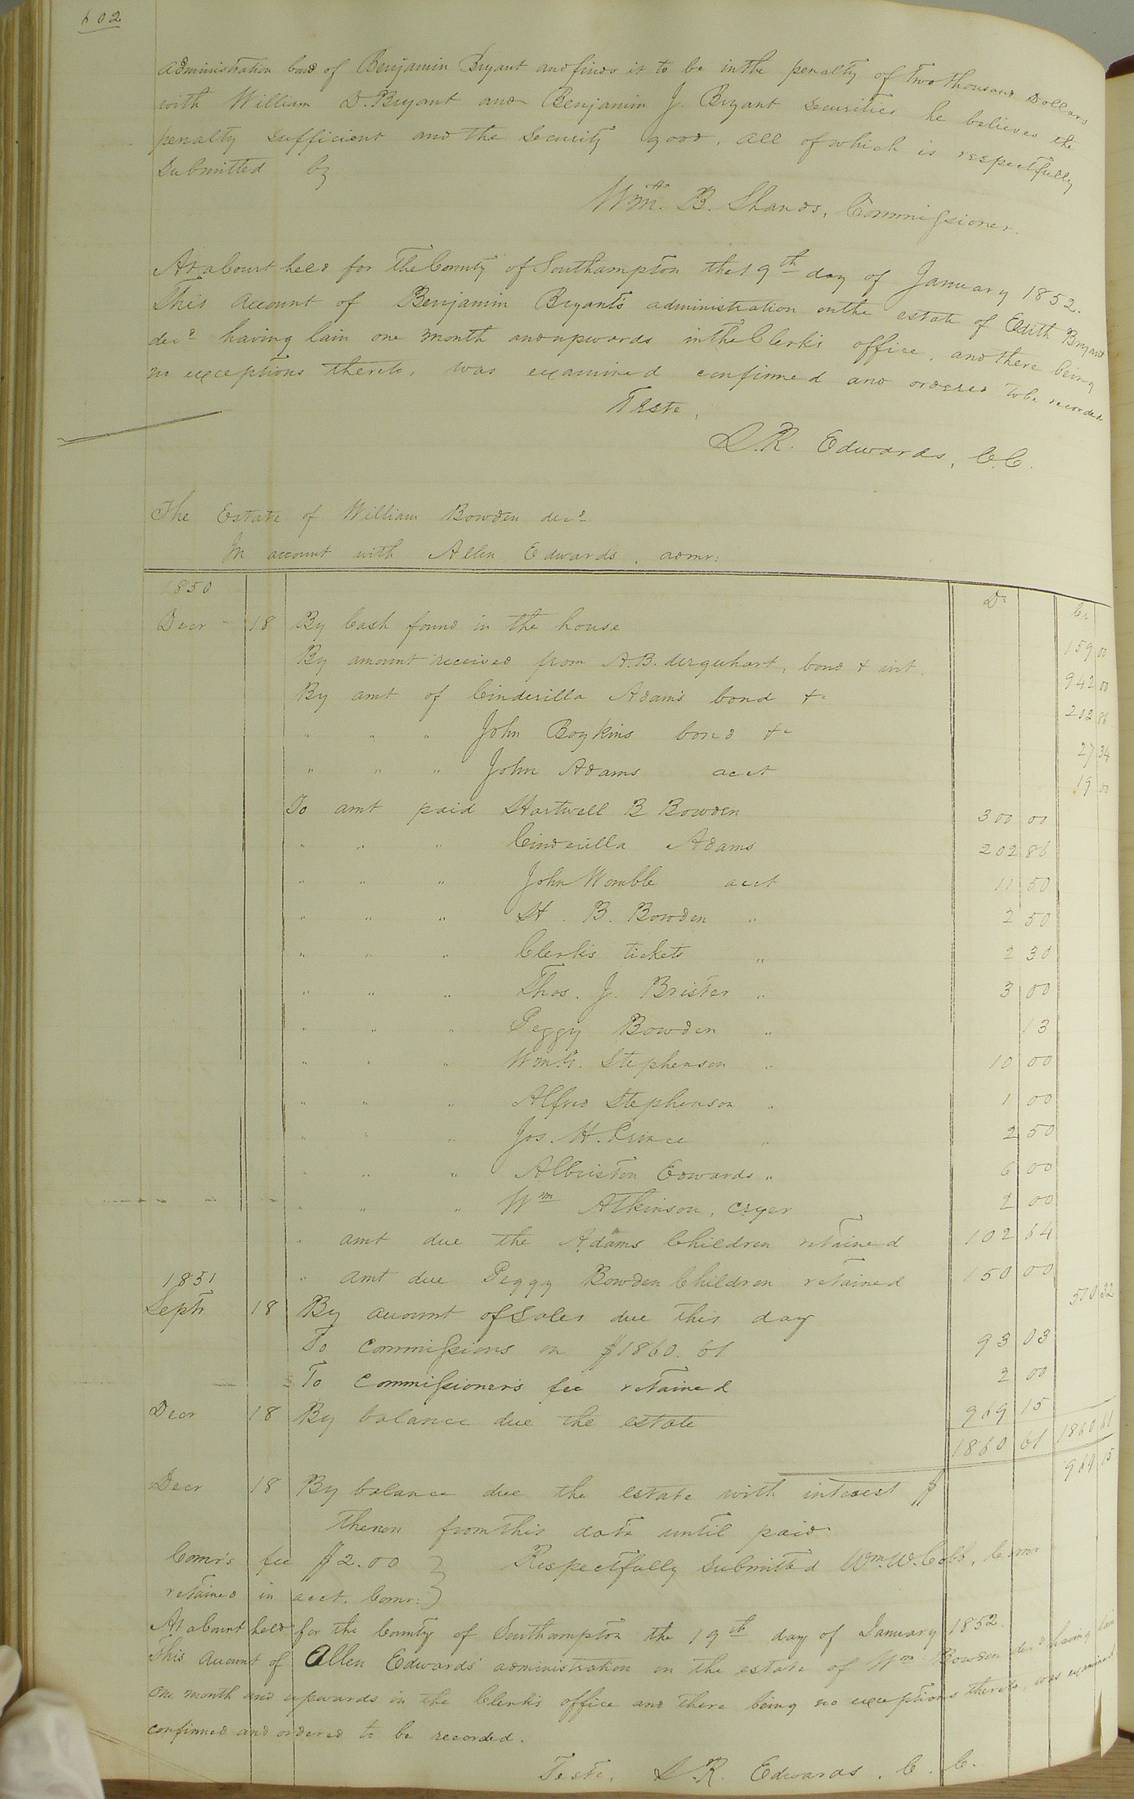 602
administration bond of Benjamin Bryant and finds it to be in the penalty of two thousand Dollars
with William D. Bryant and Benjamin J. Bryant securities he believes the
penalty sufficient and the security good, all of which is respectfully
submitted by
Wm. B. Shands, Commissioner.
At a Court held for the County of Southampton the 19th day of January 1852.
This Account of Benjamin Bryant's administration on the estate of Edith Bryant
decd having lain one month and upwards in the Clerk's office, and there being
no exceptions thereto, was examined confirmed and ordered to be recorded
Teste,
L. R. Edwards, C. C.
The Estate of William Bowden decd
In account with Allen Edwards, admr:
1850 Dr Cr
Decr 18 By Cash found in the house 159 00
By amount received from A. B. Urquhart, bond & int. 942 00
By amt of Cinderilla Adams bond &c 202 86
" " " John Boykins bond &c 27 34
" " " John Adams acct 19 00
To amt paid Hartwell B Bowden 300 00
" " " Cinderilla Adams 202 86
" " " John Womble acct 11 50
" " " H. B. Bowden " 2 50
" " " Clerk's tickets " 2 30
" " " Thos. J. Brister " 3 00
" " " Peggy Bowden " 13
" " " Stephenson " 10 00
" " " Alfred Stephenson " 1 00
" " " Jos. H. Prince " 2 50
" " " Albriston Edwards " 6 00
" " " Wm Atkinson, cryer 2 00
" amt due the Adams Children retained 102 64
1851 " amt due Peggy Bowden Children retained 150 00
Septr 18 By amount of Sales due this day 510 32
To Commissions on $1860.61 93 03
To Commissioner's fee retained 2 00
Decr 18 By balance due the estate 969 15
1860 61 1860 61
Decr 18 By balance due the estate with interest 969 15
thereon from this date until paid
Comr's fee $2.00 } Respectfully submitted Wm. W. Cobb, Comr
retained in acct. Comr: }
At a Court held for the County of Southampton the 19th day of January 1852.
This Account of Allen Edwards' administration on the estate of Wm Bowden decd having lain
one month and upwards in the Clerk's office and there being no exceptions thereto, was examined
confirmed and ordered to be recorded.
Teste, L. R. Edwards, C. C.